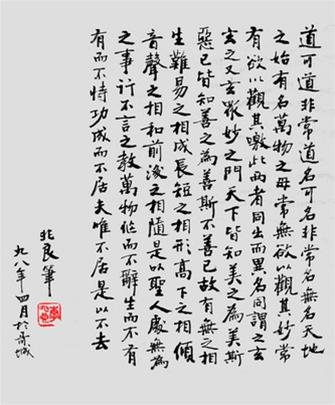 道可道非常道名可名非常名無名天地
之始有名萬物之母常無欲以觀其妙常
有欲以觀其噭此兩者同出而異名同謂之玄
玄之又玄眾妙之門天下皆知美之為美斯
惡已皆知善之為善斯不善已故有無之相
生難易之相成長短之相形高下之相傾
音聲之相和前後之相隨是以聖人處無為
之事行不言之教萬物作而不辭生而不有
有而不恃功成而不居夫唯不居是以不去
良筆
九八年四月於城